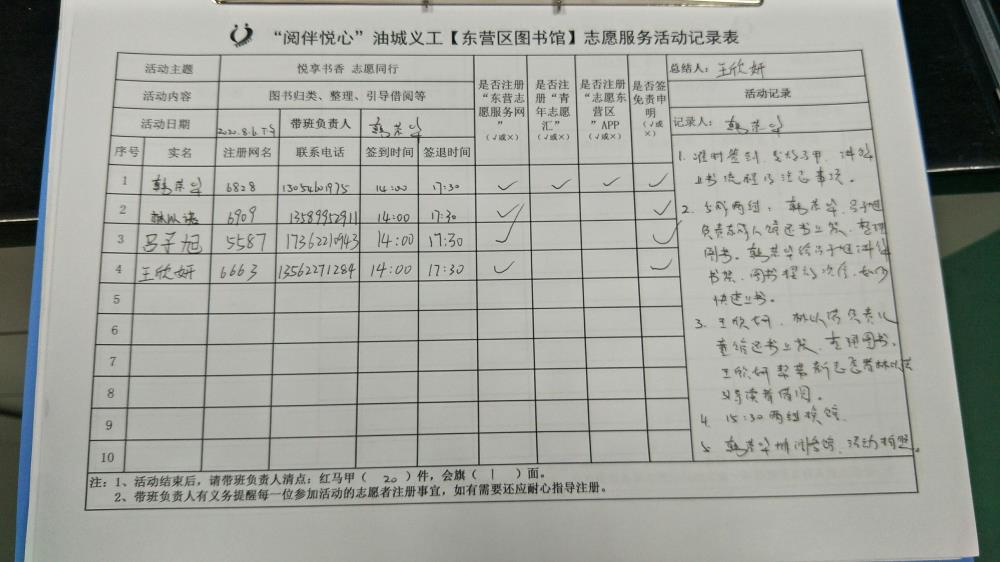 “阅伴悦心”油城义工【东营区图书馆】志愿服务活动记录表
活动主题 悦享书香 志愿同行
活动内容 图书归类、整理、引导借阅等
活动日期 2020.8.6下午 带班负责人 韩荣华
是否注册“东营志愿服务网”（√或×）
是否注册“青年志愿汇”（√或×）
是否注册“志愿东营区”APP（√或×）
是否签免责申明（√或×）
总结人：王欣妍
活动记录
记录人：韩荣华
序号 实名 注册网名 联系电话 签到时间 签退时间
1 韩荣华 6828 13054601975 14:00 17:30 ✓ ✓ ✓ ✓
2 6909 13589952911 14:00 17:30 ✓ ✓
3 吕子旭 5587 17362210943 14:00 17:30 ✓ ✓
4 王欣妍 6663 13562271284 14:00 17:30 ✓ ✓
5
6
7
8
9
10
1. 准时签到，发放马甲，讲解
上书流程及注意事项。
2. 分成两组：韩荣华、吕子旭
负责成人馆还书上架，整理
图书。韩荣华给吕子旭讲解
书架、图书摆放次序，如何
快速上书。
3. 王欣妍、林以诺负责儿
童馆还书上架、整理图书。
王欣妍帮带新志愿者林以诺
引导读者借阅。
4. 15:30两组换馆
5. 韩荣华 活动拍照。
注：1、活动结束后，请带班负责人清点：红马甲（20）件，会旗（1）面。
2、带班负责人有义务提醒每一位参加活动的志愿者注册事宜，如有需要还应耐心指导注册。